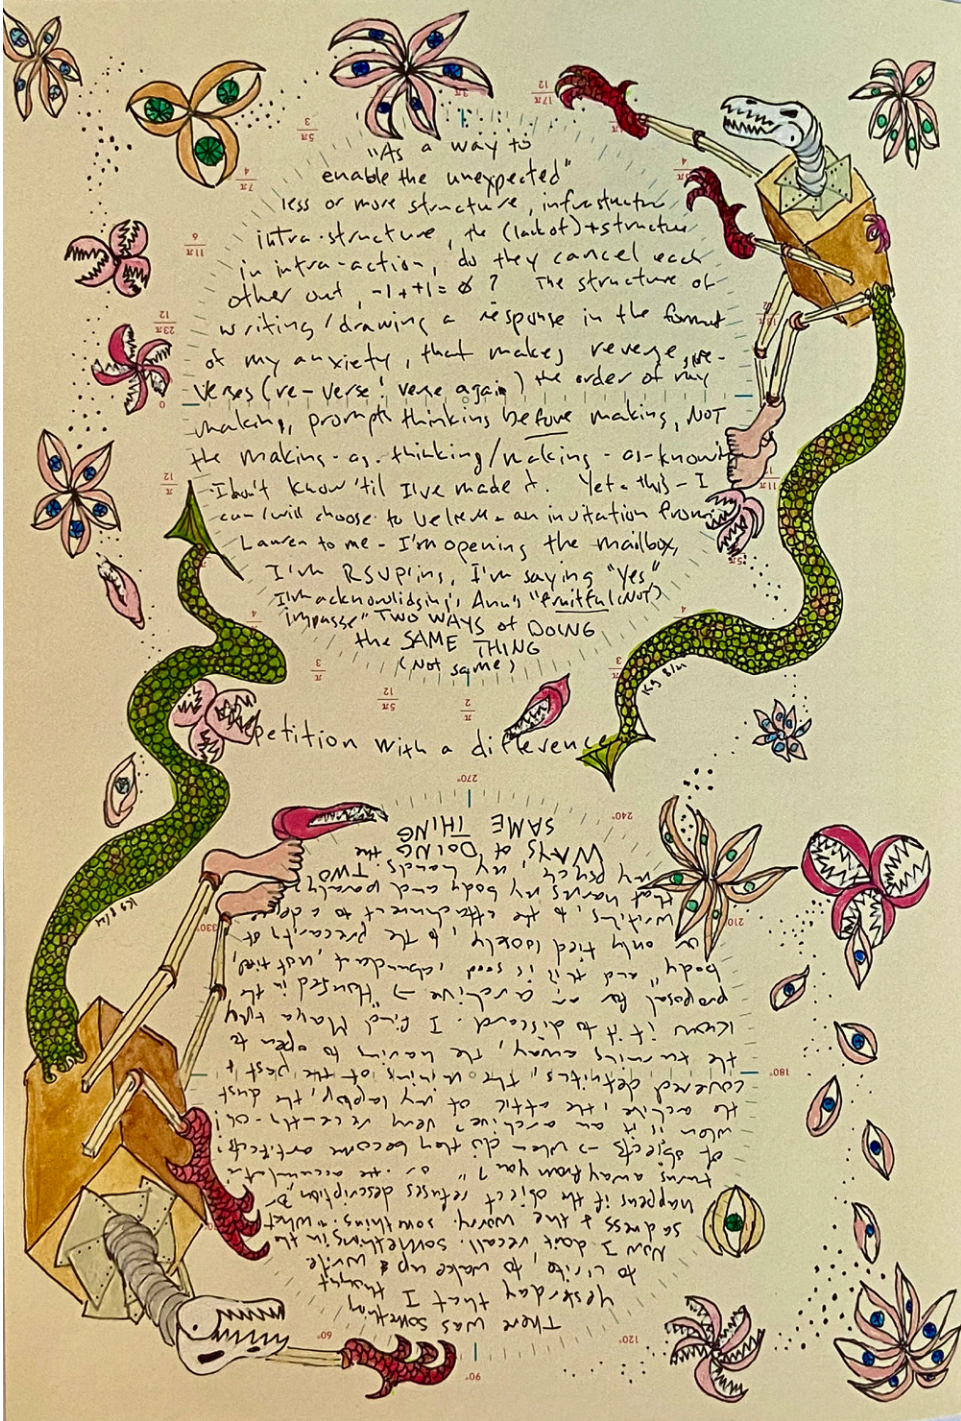 "As a way to
enable the unexpected"
less or more structure, infrastructure
intra-structure, the (lack of)+structure
in intra-action, do they cancel each
other out, -1++1=ø? The structure of
writing/drawing a response in the format
of my anxiety, that makes reverse,
verses (re-verse! verse again) the order of my
making, prompts thinking before making, NOT
the making-as-thinking/making-as-knowing
I don't know 'til I've made it. Yet-this-I
can/will choose to welcome an invitation from
Lauren to me-I'm opening the mailbox,
I'm RSVPing, I'm saying "Yes"
I'm acknowlidging, Ann's "fruitful (NOT)
impasse" TWO WAYS of DOING
the SAME THING
(Not same)
repetition with a difference
Kg 8/21
Kg 8/21
There was something
yesterday that I thought
to write, to wake up & write
Now I don't recall. Something in the
sadness & the worry. Something, "what
happens if the object refuses description, or
turns away from you?" or the accumulation
of objects → when do they become artifacts?
when is it an archive? very recently-oh!
the archive, the attic of my laptop, the dust
covered detritus, the undoing of the past &
the turning away, the having to open to
know if it to discard. I find Maya
proposal for an archive → "Housed in the
body" and this is good, abundant, not tied,
or only tied loosely, to the precarity of
writing, to the attachment to a
that harms my body and
my psyche, my hands. TWO
WAYS of DOING the
SAME THING
270°
240°
210°
180°
120°
90°
60°
330°